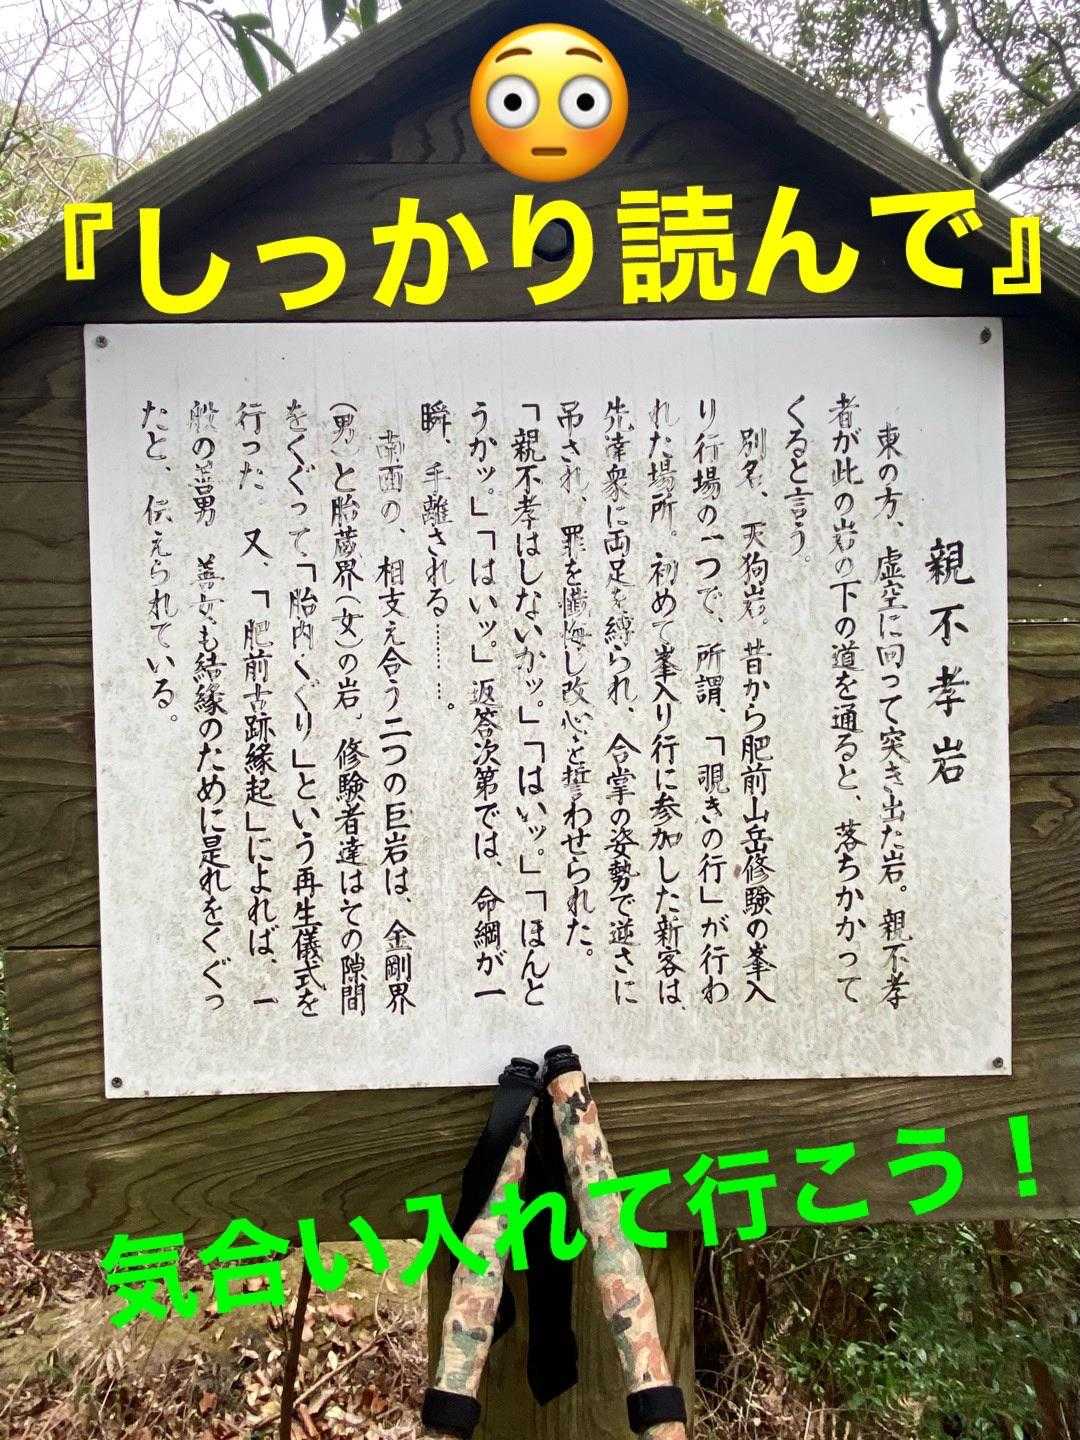 『しっかり読んで』
親不孝岩
東の方、虚空に向って突き出た岩。親不孝
者が此の岩の下の道を通ると、落ちかかって
くると言う。
別名、天狗岩。昔から肥前山岳修験の峯入
り行場の一つで、所謂、「覗きの行」が行わ
れた場所。初めて峯入り行に参加した新客は、
先達衆に両足を縛られ、合掌の姿勢で逆さに
吊され、罪を懺悔し改心を誓わせられた。
「親不孝はしないかッ。」「はいッ。」「ほんと
うかッ。」「はいッ。」返答次第では、命綱が一
瞬、手離される………。
南面の、相支え合う二つの巨岩は、金剛界
(男)と胎蔵界(女)の岩。修験者達はその隙間
をくぐって「胎内くぐり」という再生儀式を
行った。又、「肥前古跡縁起」によれば、一
般の善男 善女も結縁のために是れをくぐっ
たと、伝えられている。
気合い入れて行こう!